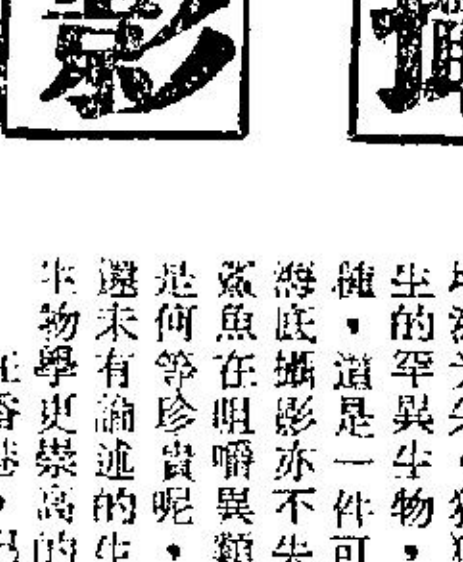 影
生的罕異生物，
種，這是一件可
海底攝影亦不失
鯊魚在咀嚼異類
是何等珍貴呢，
還未有論述的生
生物學更崇高的